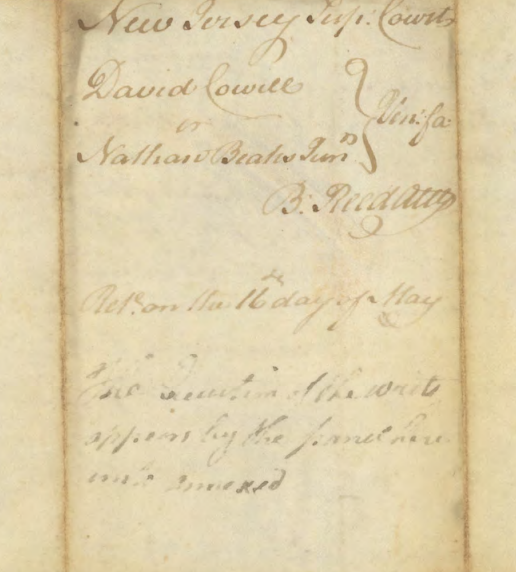 New Jersey Sup: Court
David Cowell
vs
Nathan Beaks Junr
} Ven: fa
B. Reed Atty
Retb. on the 16th day of May
The Execution of the writ
appears by the panel here
unto annexed